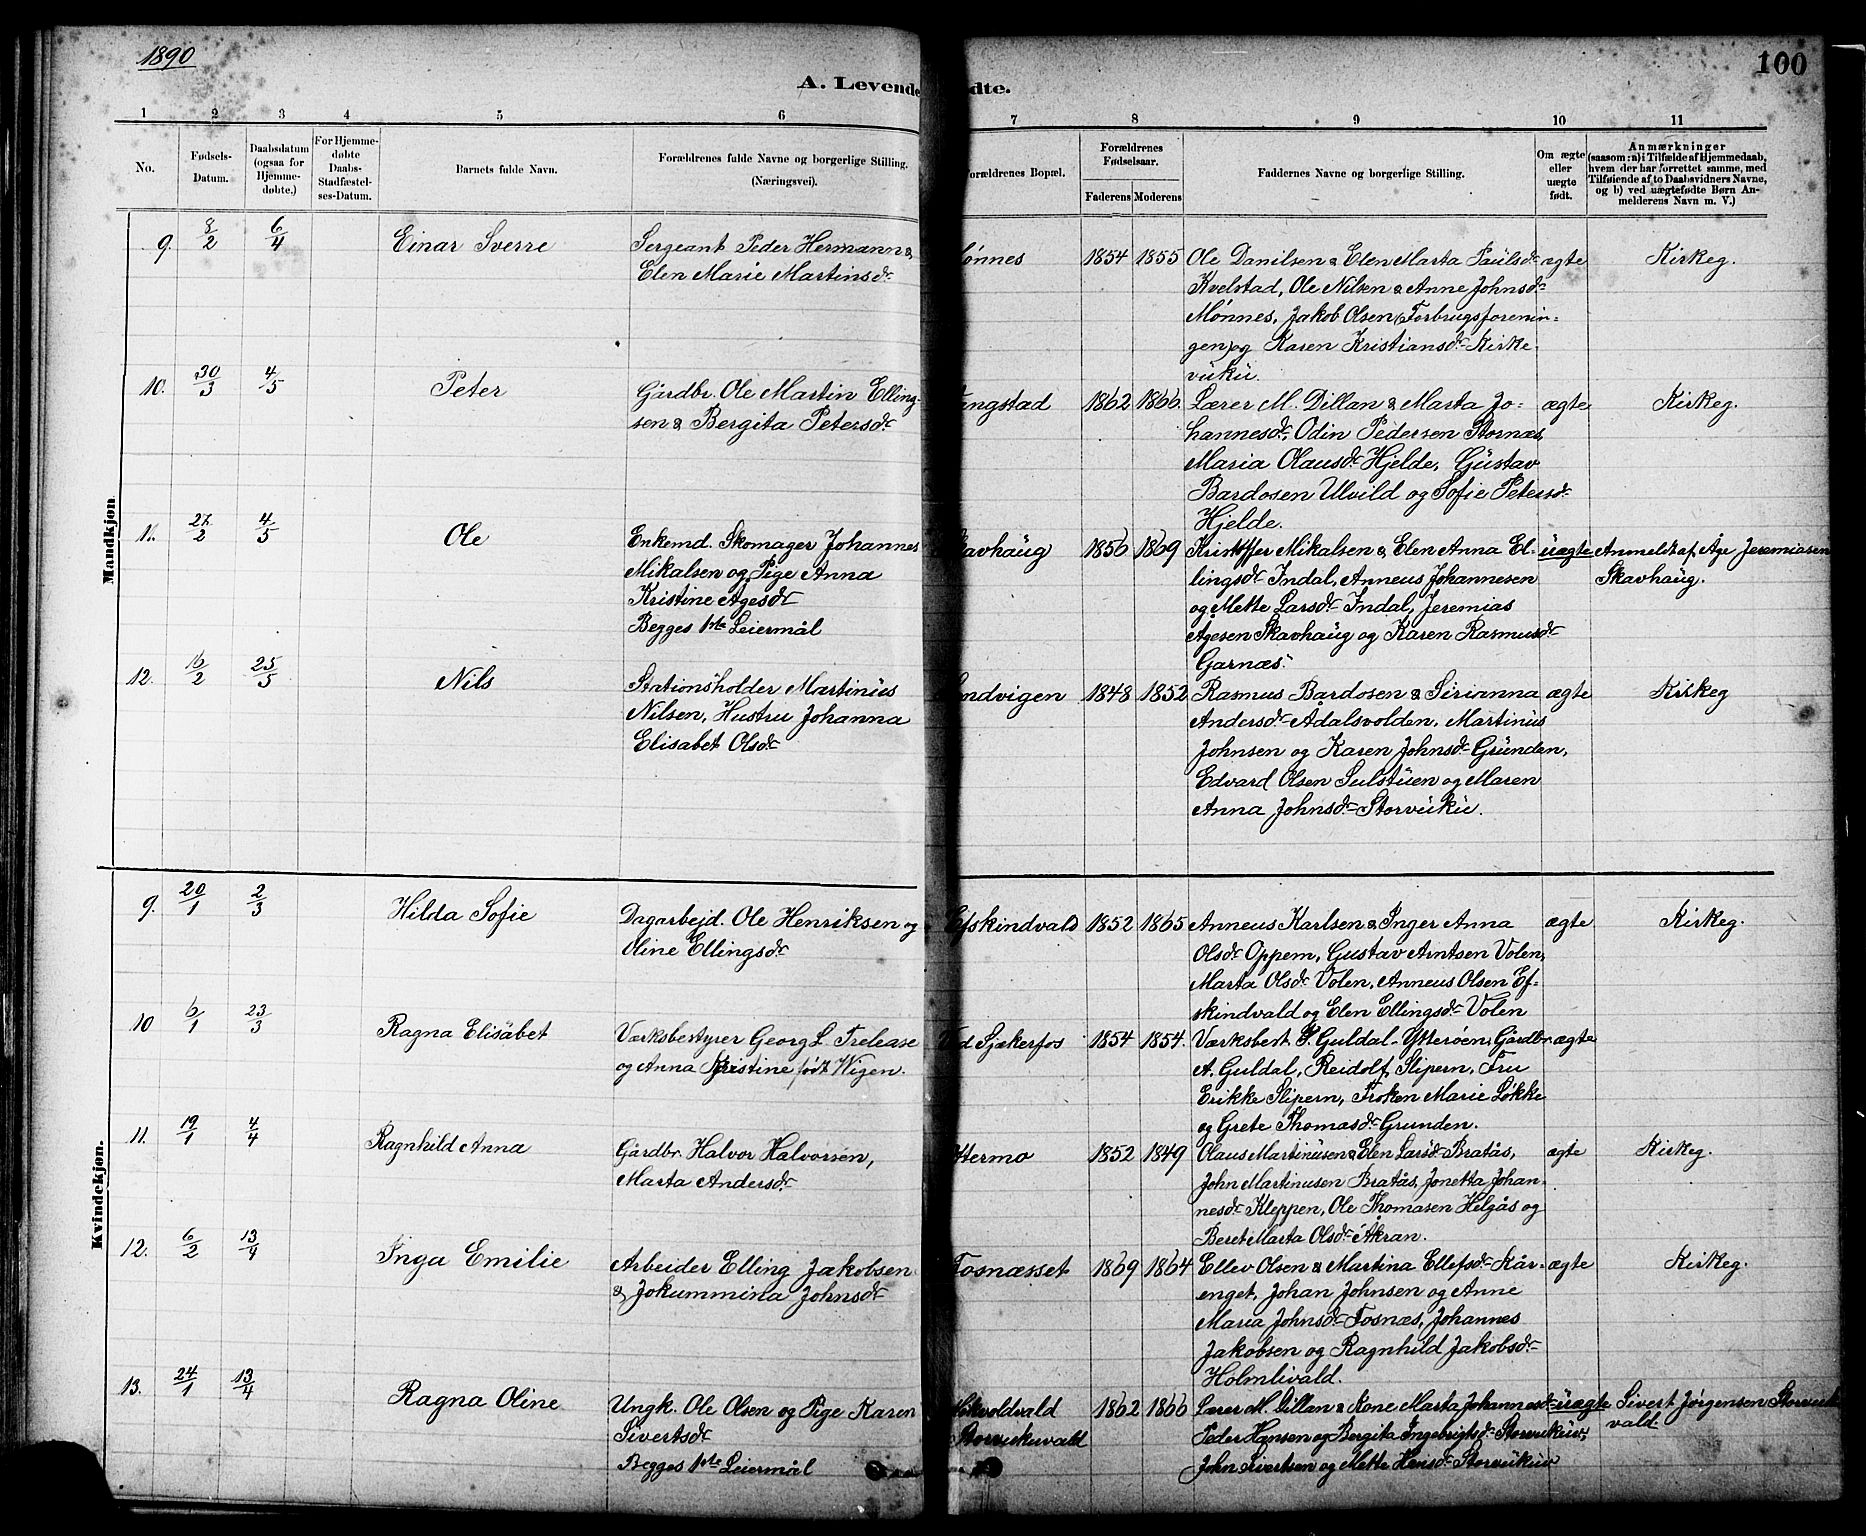 1890
100
A. Levende
dte.
1 2 3 4 5 6 7 8 9 10 11
No.
Fødsels-Datum.
Daabsdatum (ogsaa for Hjemmedøbte.)
For Hjemmedøbte Daabs-Stadfæstelses-Datum.
Barnets fulde Navn.
Forældrenes fulde Navne og borgerlige Stilling. (Næringsvei).
Forældrenes Bopæl.
Forældrenes Fødselsaar.
Faderens Moderens
Faddernes Navne og borgerlige Stilling.
Om ægte eller uægte født.
Anmærkninger
(saasom: a) i Tilfælde af Hjemmedaab, hvem der har forrettet samme, med Tilføiende af to Daabsvidners Navne, og b) ved uægtefødte Børn Anmelderens Navn m. V.)
Mandkjøn
9. 8/2 6/4 Einar Sverre
Sergeant Peder Hermann &
Elen Marie Martinsdr
ønnes 1854 1855
Ole Danilsen & Elen Marta Paulsdr
Kvelstad, Ole Nilsen & Anne Johnsdr
Mønnes, Jakob Olsen (Forbrugsforenin-
gen) og Karen Kristiansdr Kirke-
vuku.
ægte Kirkeg.
10. 30/3 4/5 Peter
Gårdbr. Ole Martin Elling-
sen & Bergita Petersdr
ngstad 1862 1866
Lærer M. Dillan & Marta Jo-
hannesdr, Odin Pedersen Stornæs,
Maria Olausdr Hjelde, Gustav
Bardosen Ulvild og Sofie Petersdr
Hjelde.
ægte Kirkeg.
11. 27/2 4/5 Ole
Enkemd. Skomager Johannes
Mikalsen og Pige Anna
Kristine Agesdr
Begges 1ste Leiermål
kavhaug 1856 1869
Kristoffer Mikalsen & Elen Anna El-
lingsdr Indal, Anneus Johannesen
og Mette Larsdr Indal, Jeremias
Agesen Skavhaug og Karen Rasmusdr
Garnæs.
uægte Anmeldt af Age Jeremiasen
Skavhaug.
12. 16/2 25/5 Nils
Stationsholder Martinus
Nilsen, Hustru Johanna
Elisabet Olsdr
ndvigen 1848 1852
Rasmus Bårdosen & Sirianna
Andersdr Ådalsvolden, Martinus
Johnsen og Karen Johnsdr Grunden,
Edvard Olsen Sulstuen og Maren
Anna Johnsdr Storvuku.
ægte Kirkeg
Kvindekjøn.
9. 20/1 2/3 Hilda Sofie
Dagarbejd. Ole Henriksen og
Oline Ellingsdr
Efskindvald 1852 1865
Anneus Karlsen & Inger Anna
Olsdr Oppem, Gustav Arntsen Volen,
Marta Olsdr Volen, Anneus Olsen Ef-
skindvald og Elen Ellingsdr Volen
ægte Kirkeg.
10 6/1 23/3 Ragna Elisabet
Værksbestyrer Georg L. Trelease
og Anna Kristine født Wigen.
Ved Sjækerfos 1854 1854.
Værksbest. Guldal Ytterøen, Gårdbr.
A. Guldal, Reidolf Slipern, Fru
Erikke Slipern, Frøken Marie Løkke
og Grete Thomasdr Grunden.
ægte
11. 19/1 4/4 Ragnhild Anna
Gårdbr. Halvor Halvorsen,
Marta Andersdr
ttermo 1852 1849
Olaus Martinusen & Elen Larsdr Bratås,
John Martinusen Bratås, Jonetta Johan-
nesdr Kleppen, Ole Thomasen Helgås og
Beret Marta Olsdr Åkran.
ægte Kirkeg.
12. 6/2 13/4 Inga Emilie
Arbeider Elling Jakobsen
& Jokummina Johnsdr
Fosnæsset 1869 1864
Ellev Olsen & Martina Ellefsdr Kår-
enget, Johan Johnsen og Anne
Maria Johnsdr Fosnæs, Johannes
Jakobsen og Ragnhild Jakobsdr
Holmlivald.
ægte Kirkeg.
13. 24/1 13/4 Ragna Oline
Ungk. Ole Olsen og Pige Karen
Sivertsdr
Begges 1ste Leiermål
Storvukuvald 1862 1866
Lærer M. Dillan & Kone Marta Johannesdr
Peder Hansen og Bergita Ingebrigtsdr Storvukuv,
John Sivertsen og Mette Hansdr Storvukuv
uægte Sivert Jørgensen Storvuku
vald.